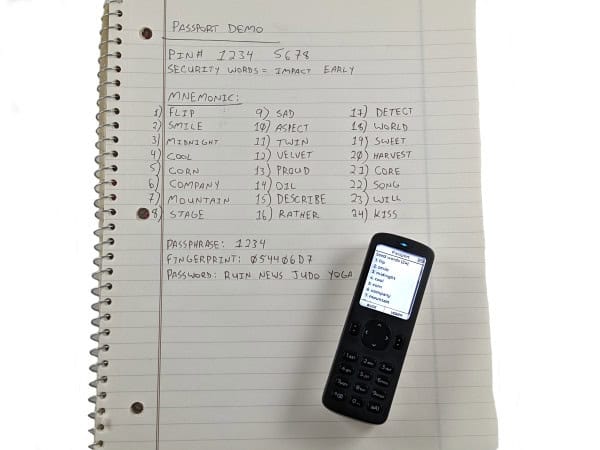 PASSPORT DEMO
PIN# 1234 5678
SECURITY WORDS = IMPACT EARLY
MNEMONIC:
1) FLIP 9) SAD 17) DETECT
2) SMILE 10) ASPECT 18) WORLD
3) MIDNIGHT 11) TWIN 19) SWEET
4) COOL 12) VELVET 20) HARVEST
5) CORN 13) PROUD 21) CORE
6) COMPANY 14) OIL 22) SONG
7) MOUNTAIN 15) DESCRIBE 23) WILL
8) STAGE 16) RATHER 24) KISS
PASSPHRASE: 1234
FINGERPRINT: 054406D7
PASSWORD: RUIN NEWS JUDO YOGA
Passport
1. flip
2. smile
3. midnight
4. cool
5. corn
6. company
7. mountain